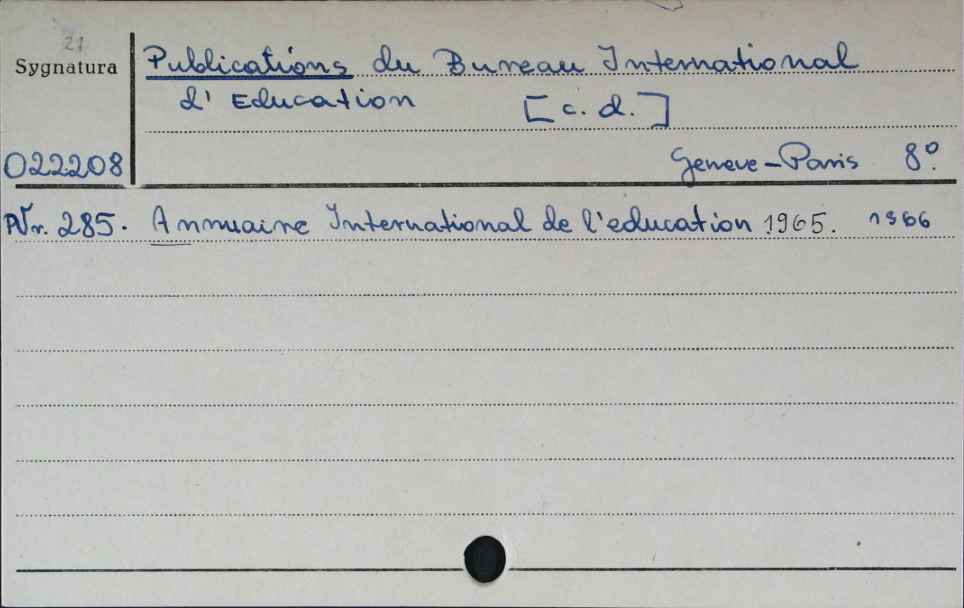 21
Sygnatura
Publications du Bureau International
d'Education [c.d.]
022208
Geneve-Paris 8°
Nr. 285. Annuaire International de l'education 1965. 1966